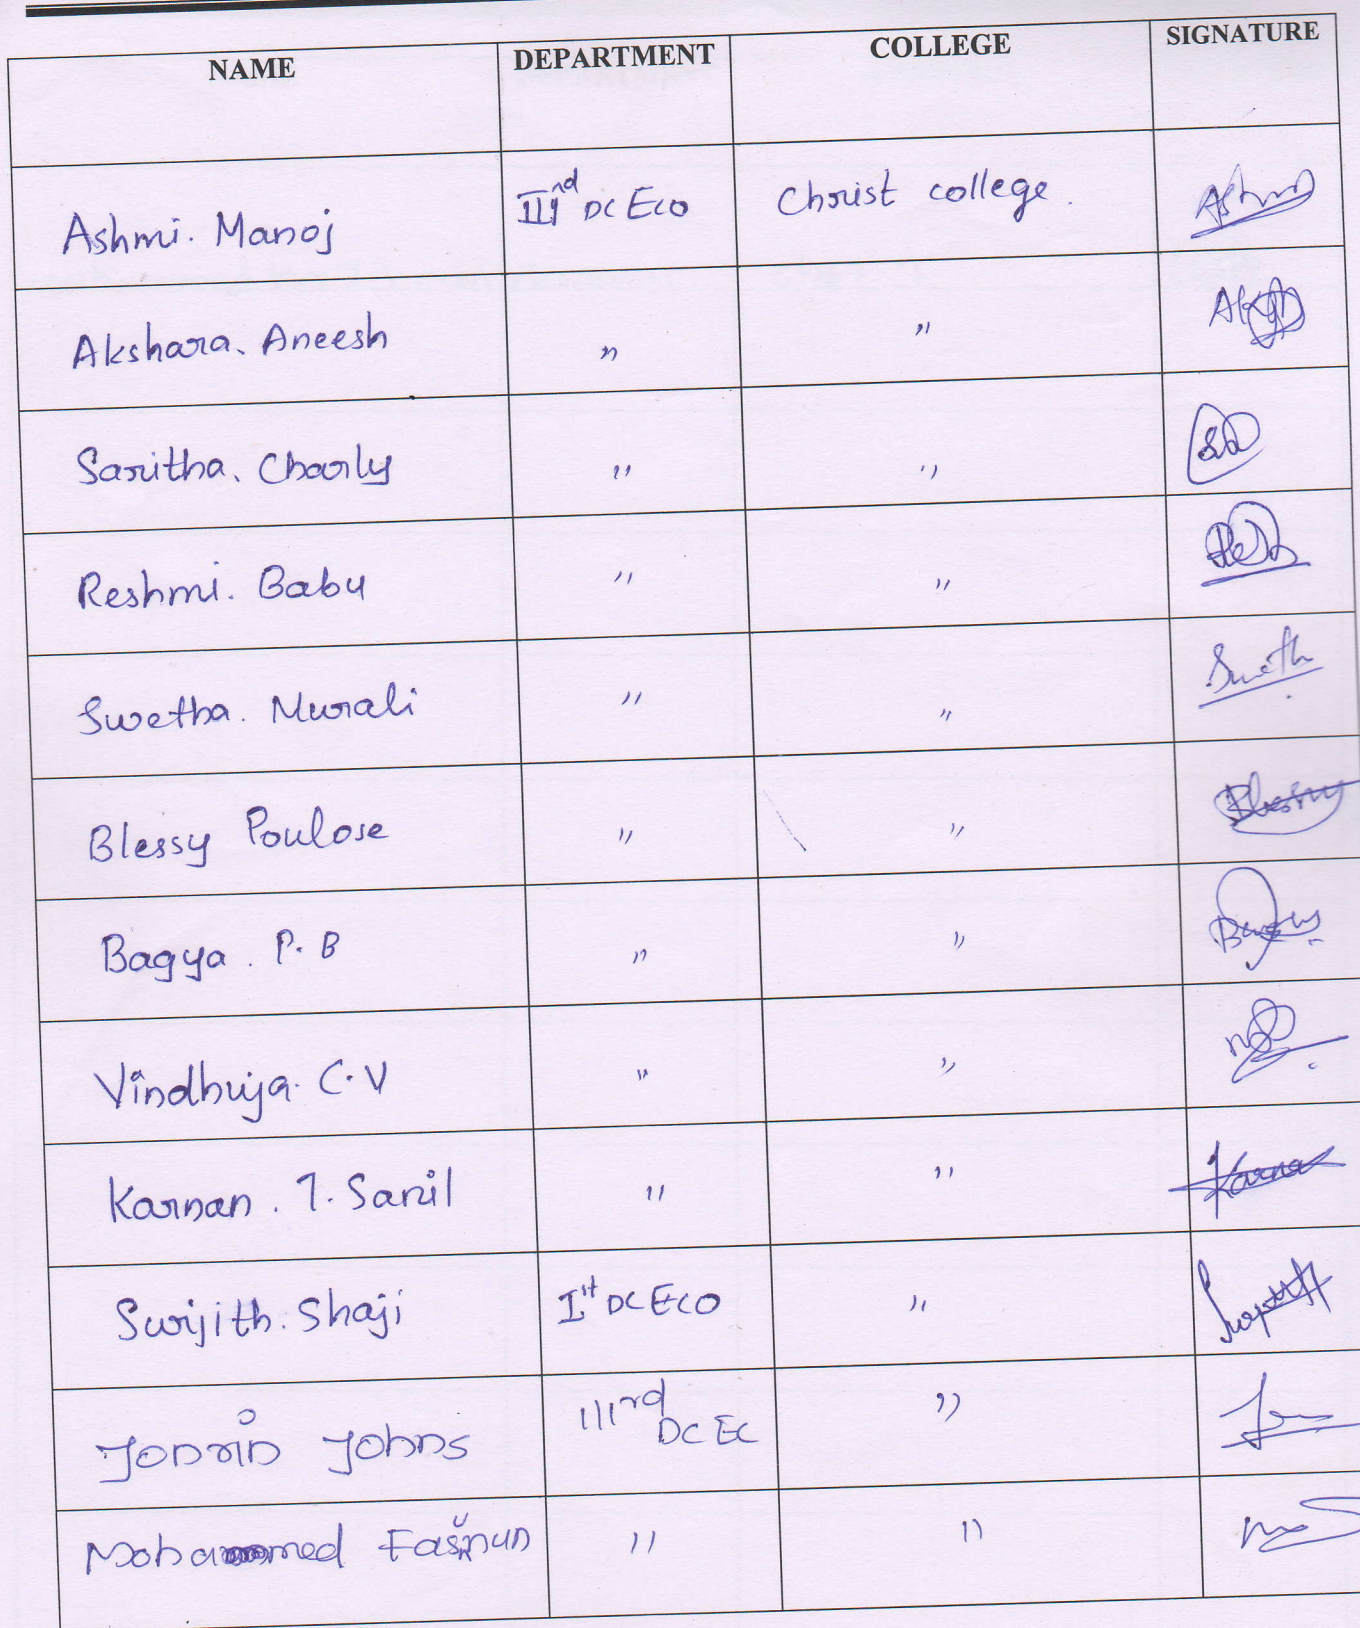 NAME DEPARTMENT COLLEGE SIGNATURE
Ashmi. Manoj IIIrd DC Eco Christ college. Ashmi
Akshara. Aneesh " "
Saritha. Charly " "
Reshmi. Babu " "
Swetha. Murali " " Sweth
Blessy Poulose " " Blessy
Bagya. P. B " "
Vindhuja. C. V " "
Karnan. T. Sanil " " Karna
Surijith. Shaji Ist DC ECO "
Jonrin Johns IIIrd DC EC "
Mohammed " "